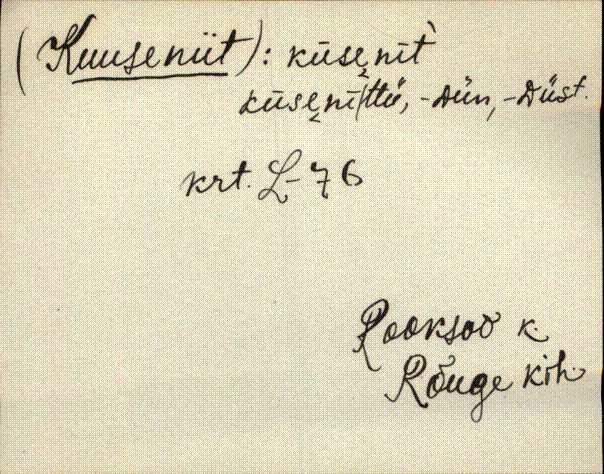 (Kuuseniit): kūse̬nīt̀
kūse̬nī/ttü, -Dün, -Düst.
krt. L-76
Rooksoo k.
Rõuge kih.